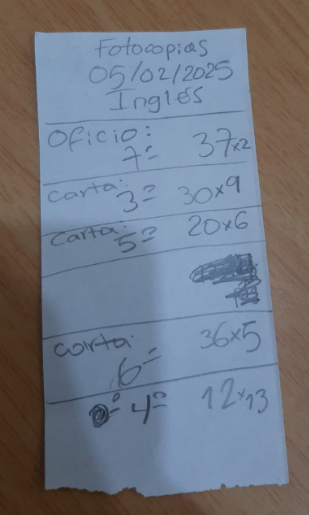 Fotocopias
05/02/2025
Inglés
Oficio:
7º 37x2
Carta:
3º 30x9
Carta:
5º 20x6
Carta:
6º 36x5
4º 12x13